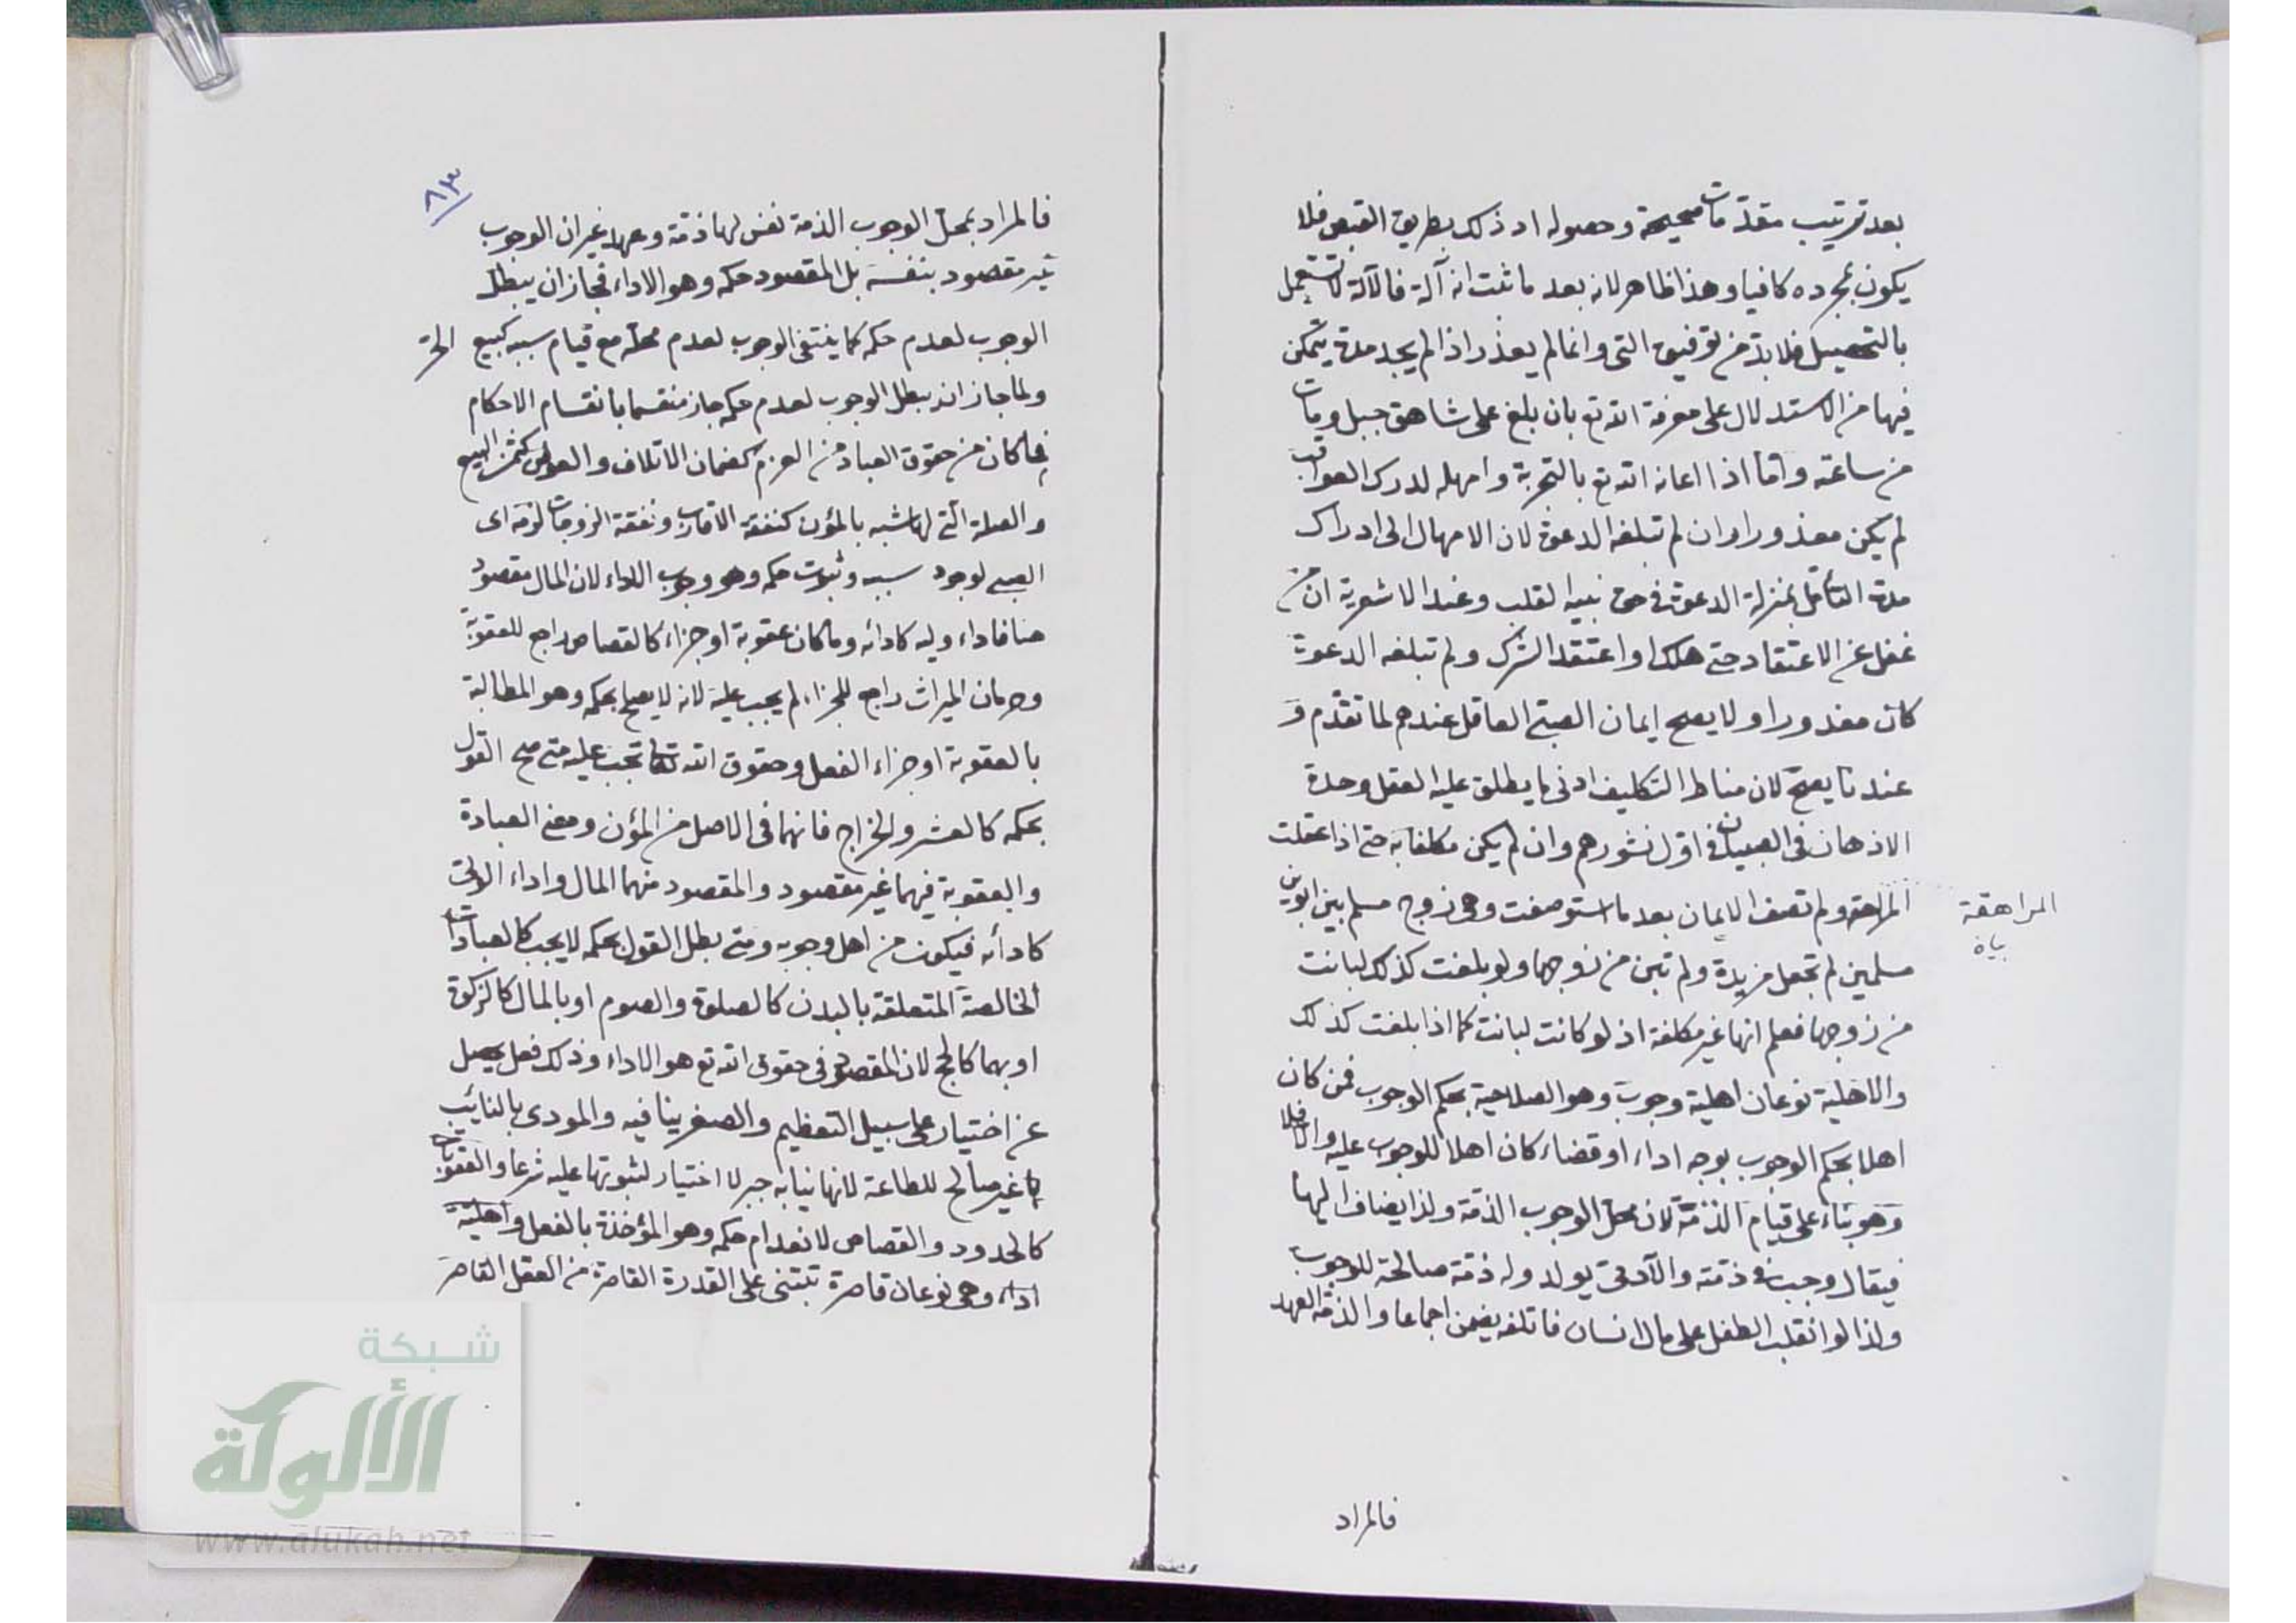 بعد ترتيب مقدمات صحيحة وحصوله اذ ذلك بطريق الفيض فلا
يكون بمجرده كافيا وهذا ظاهر لانه بعد ما ثبت انه آلة فالآلة لا تستعمل
بالتحصيل فلا بد من توفيق الهى وانما لم يعذر اذا لم يجد مدة يتمكن
فيها من الاستدلال على معرفة الله تع بان بلغ على شاهق جبل ومات
من ساعته واما اذا اعانه الله تع بالتجربة وامهله لدرك العواقب
لم يكن معذورا وان لم تبلغه الدعوة لان الامهال الى ادراك
مدة التأمل بمنزلة الدعوة فى حق تنبيه القلب وعند الاشعرية ان من
غفل عن الاعتقاد حتى هلك او اعتقد الشرك ولم تبلغه الدعوة
كان معذورا ولا يصح ايمان الصبى العاقل عندهم لما تقدم و
عندنا يصح لان مناط التكليف ادنى ما يطلق عليه العقل وحدة
الاذهان فى الصبيان فى اول نشورهم وان لم يكن مكلفا به حتى اذا عقلت
المراهقة ولم تصف الايمان بعد ما استوصفت وهى زوج مسلم بين ابوين
المراهقة
بيان
مسلمين لم تجعل مرتدة ولم تبن من زوجها ولو بلغت كذلك لبانت
من زوجها فعلم انها غير مكلفة اذ لو كانت لبانت كما اذا بلغت كذلك
والاهلية نوعان اهلية وجوب وهو الصلاحية بحكم الوجوب فمن كان
اهلا بحكم الوجوب بوجه اداء او قضاء كان اهلا للوجوب عليه والا فلا
وهو بناء على قيام الذمة لان محل الوجوب الذمة ولذا يضاف اليها
فيقال وجب فى ذمته والآدمى يولد وله ذمة صالحة للوجوب
ولذا لو انقلب الطفل على مال انسان فاتلفه يضمن اجماعا والذمة العهد
فالمراد
٨٣
فالمراد بمحل الوجوب الذمة نفس لها ذمة وعهد غير ان الوجوب
غير مقصود بنفسه بل المقصود حكمه وهو الاداء فجاز ان يبطل
الوجوب لعدم حكمه كما ينتفى الوجوب لعدم محله مع قيام سببه كبيع الحر
ولما جاز ان يبطل الوجوب لعدم حكمه جاز منقسما بانقسام الاحكام
فما كان من حقوق العباد من الغرم كضمان الاتلاف والعوض كثمن المبيع
والصلة التى لها شبه بالمؤن كنفقة الاقارب ونفقة الزوجات لزمه اى
الصبى لوجود سببه وثبوت حكمه وهو وجوب الاداء لان المال مقصود
هنا فاداء وليه كادائه وما كان عقوبة او جزاء كالقصاص راجع للعقوبة
وحرمان الميراث راجع للجزاء لم يجب عليه لانه لا يصلح بحكمه وهو المطالبة
بالعقوبة او جزاء الفعل وحقوق الله تعالى تجب عليه متى صح القول
بحكمه كالعشر والخراج فانهما فى الاصل من المؤن ومعنى العبادة
والعقوبة فيهما غير مقصود والمقصود منهما المال واداء الولى
كادائه فيكون من اهل وجوبه ومتى بطل القول بحكمه لا يجب كالعبادات
الخالصة المتعلقة بالبدن كالصلوة والصوم او بالمال كالزكوة
او بهما كالحج لان المقصود فى حقوق الله تع هو الاداء وذلك فعل يحصل
عن اختيار على سبيل التعظيم والصغر ينافيه والمودى بالنائب
غير صالح للطاعة لانها نيابة جبر لا اختيار لثبوتها عليه شرعا والعقوبات
كالحدود والقصاص لانعدام حكمه وهو المؤخذة بالفعل واهلية
اداء وهى نوعان قاصرة تبتنى على القدرة القاصرة من العقل القاصر
شبكة
الألوكة
www.alukah.net